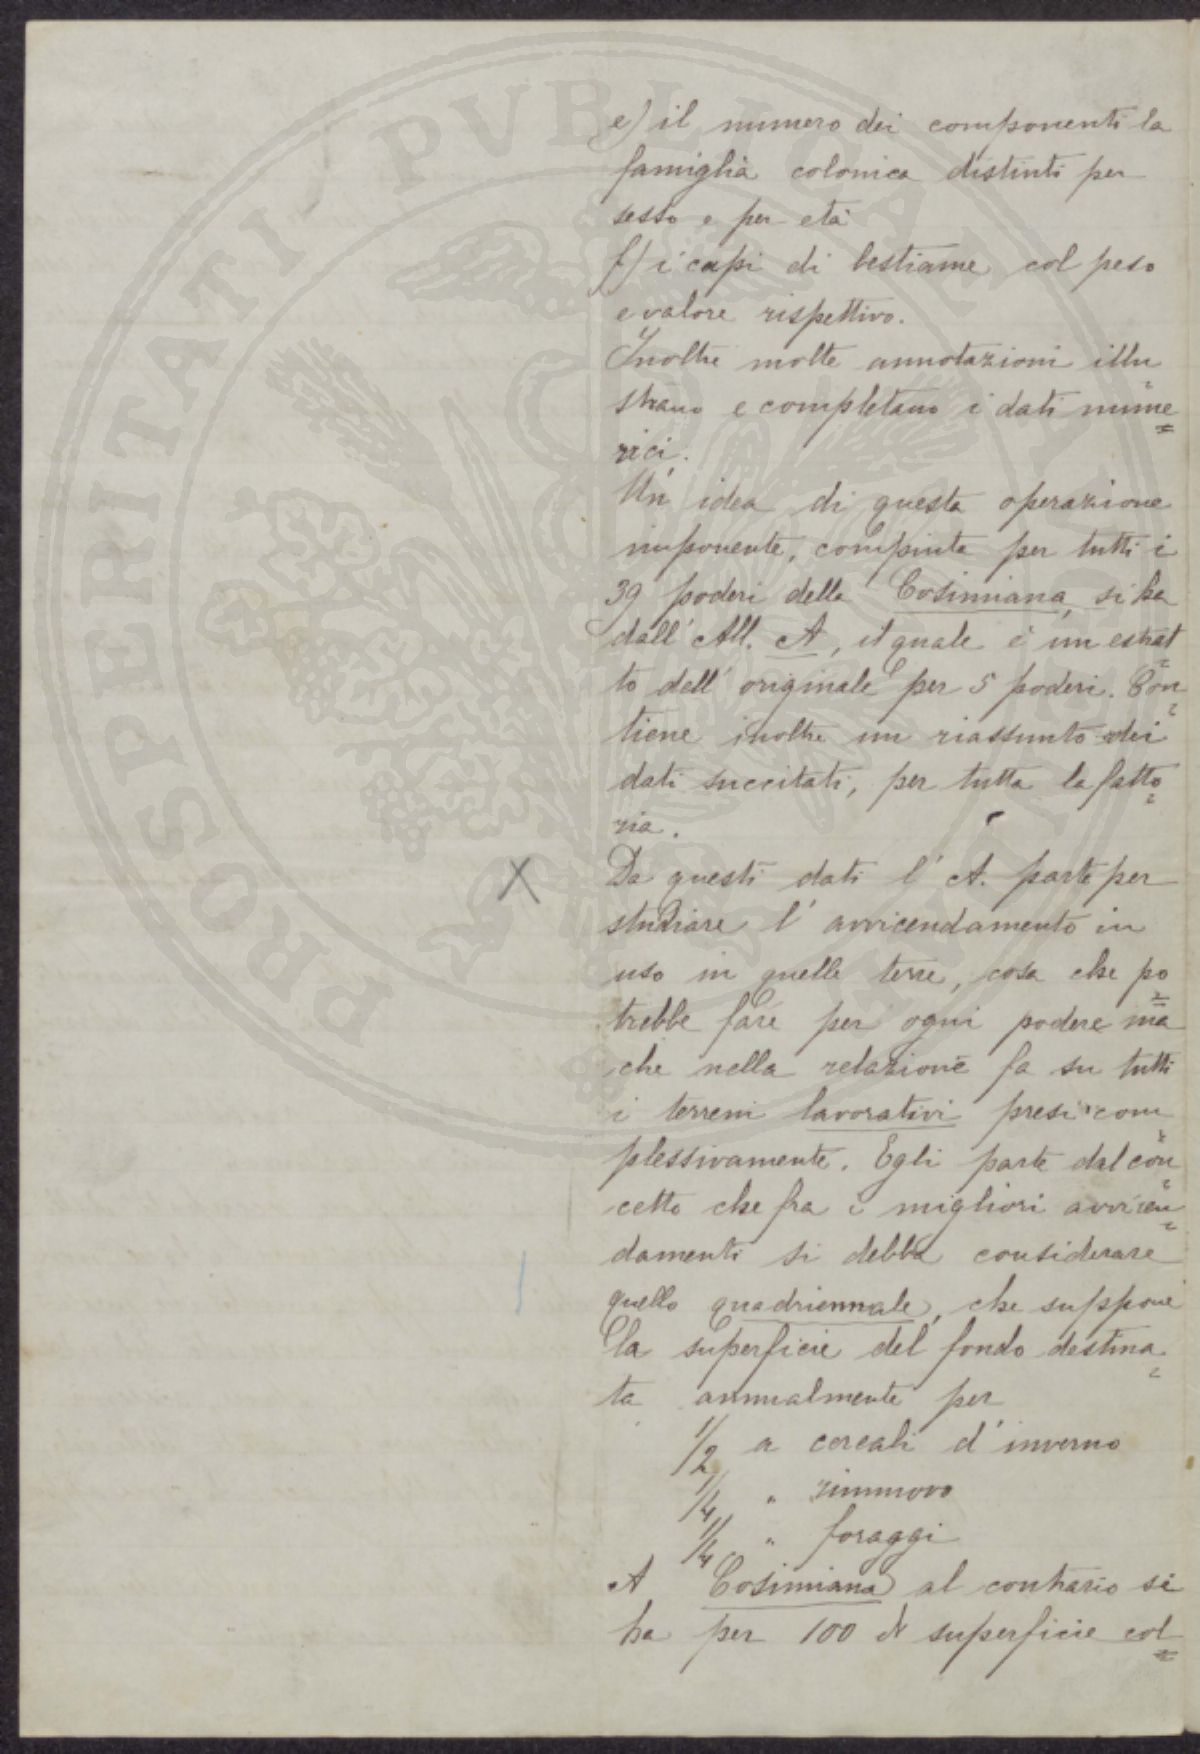 e) il numero dei componenti la
famiglia colonica distinti per
sesso e per età
f) i capi di bestiame col peso
e valore rispettivo.
Inoltre molte annotazioni illu
strano e completano i dati nume=
rici.
Un' idea di questa operazione
imponente, compiuta per tutti i
39 poderi della Cosimiana, si ha
dall' All. A, il quale è un estrat=
to dell' originale per 5 poderi. Con=
tiene inoltre un riassunto dei
dati succitati, per tutta la fatto=
ria.
X Da questi dati l' A. parte per
studiare l' avvicendamento in
uso in quelle terre, cosa che po=
trebbe fare per ogni podere ma
che nella relazione fa su tutti
i terreni lavorativi presi com=
plessivamente. Egli parte dal con=
cetto che fra i migliori avvicen=
damenti si debba considerare
quello quadriennale, che suppone
la superficie del fondo destina=
ta annualmente per
1/2 a cereali d' inverno
1/4 " rinnovo
1/4 " foraggi
A Cosimiana al contrario si
ha per 100 di superficie col=
PROSPERITATI PVBLICAE AVGENDAE